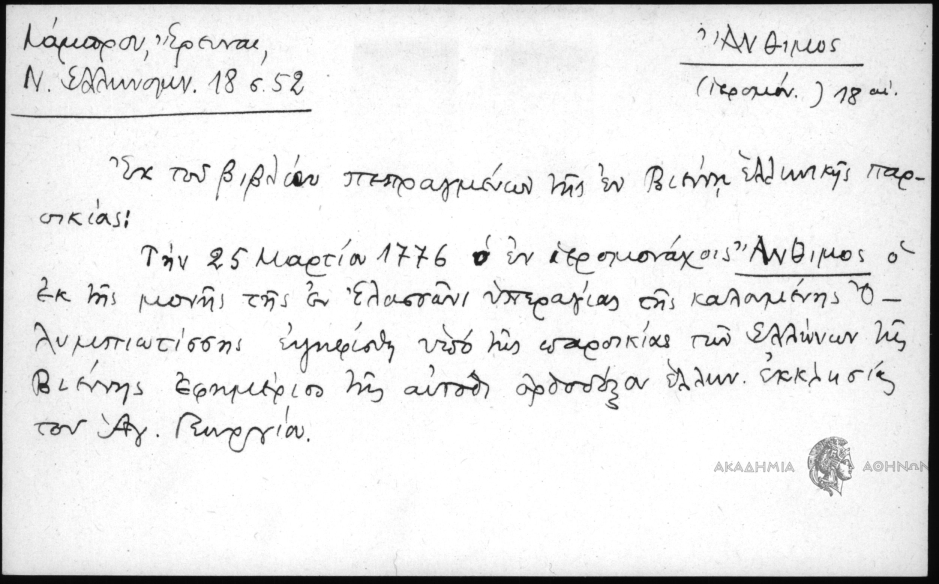 Λάμπρου, Ἔρευναι,
Ν. Ἑλληνομν. 18 σ. 52
Ἄνθιμος
(ἱερομόν.) 18 αἰ.
Ἐκ τοῦ βιβλίου πεπραγμένων τῆς ἐν Βιέννῃ ἑλληνικῆς παρ-
οικίας:
Τὴν 25 Μαρτίου 1776 ὁ ἐν ἱερομονάχοις Ἄνθιμος ὁ
ἐκ τῆς μονῆς τῆς ἐν Ἐλασσῶνι ὑπεραγίας τῆς καλουμένης Ὀ-
λυμπιωτίσσης ἐψηφίσθη ὑπὸ τῆς παροικίας τῶν Ἑλλήνων τῆς
Βιέννης ἐφημέριος τῆς αὐτόθι ὀρθοδόξου ἑλλην. ἐκκλησίας
τοῦ Ἁγ. Γεωργίου.
ΑΚΑΔΗΜΙΑ ΑΘΗΝΩΝ